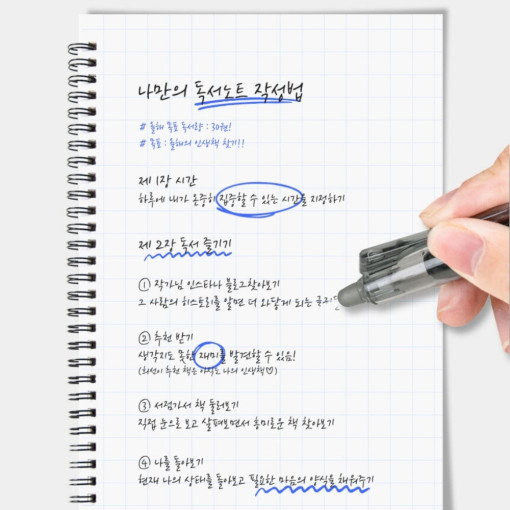 나만의 독서노트 작성법
# 올해 목표 독서량 : 30권!
# 목표 : 올해의 인생책 찾기!!
제 1장 시간
하루에 내가 온종히 집중할 수 있는 시간을 지정하기
제 2장 독서 즐기기
① 작가님 인스타나 블로그찾아보기
그 사람의 히스토리를 알면 더 와닿게 되는 글귀
② 추천 받기
생각지도 못한 재미를 발견할 수 있음!
(희선이 추천 책은 아직도 나의 인생책♡)
③ 서점가서 책 둘러보기
직접 눈으로 보고 살펴보면서 흥미로운 책 찾아보기
④ 나를 돌아보기
현재 나의 상태를 돌아보고 필요한 마음의 양식을 채워주기